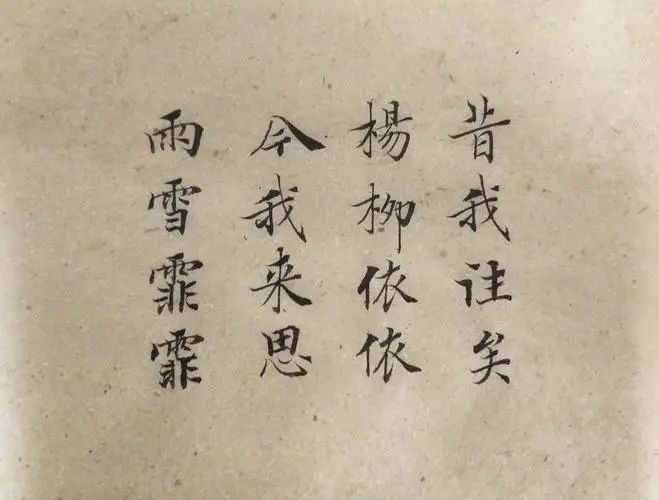 昔我诖矣
楊柳依依
今我来思
雨雪霏霏